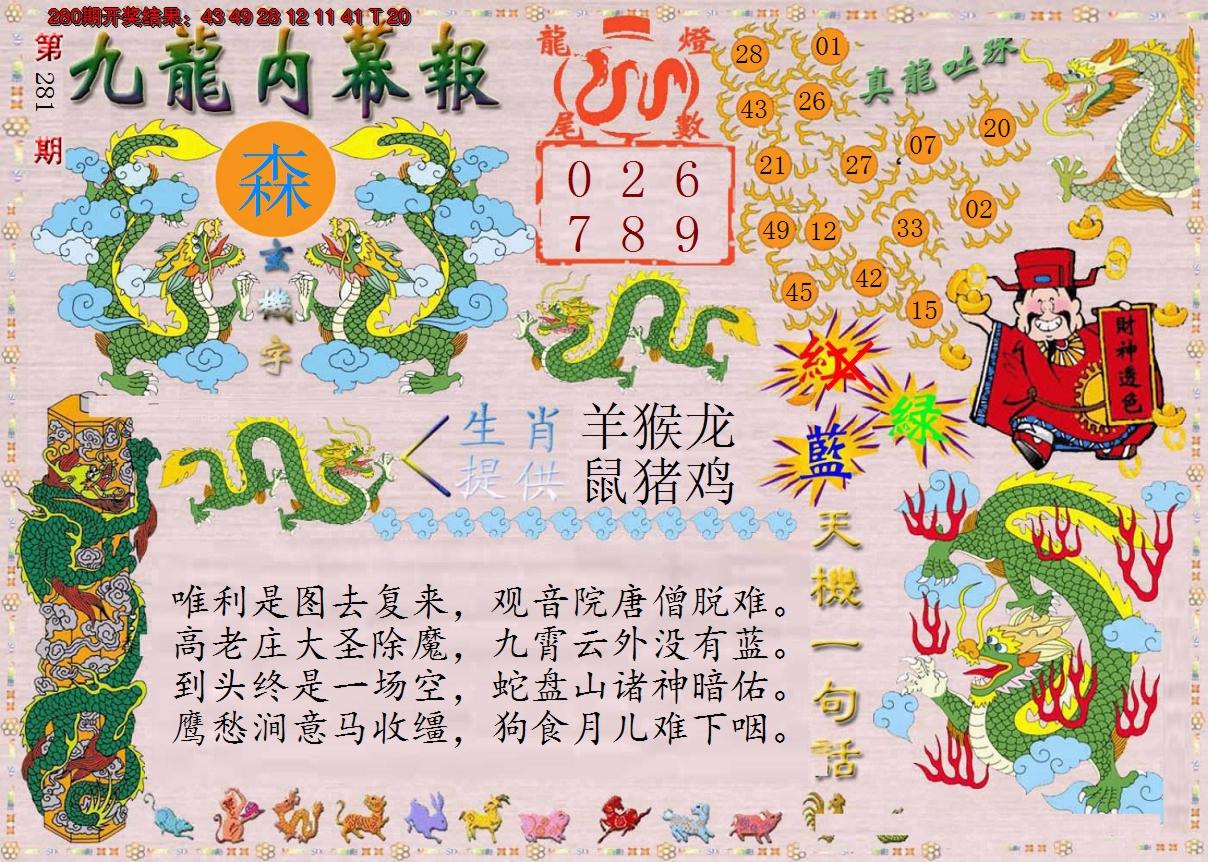 280期开奖结果：43 49 28 12 11 41 T 20
第
281
期
九龍内幕報
森
玄
機
字
龍
燈
尾
數
0 2 6
7 8 9
真龍吐珠
28
01
43
26
20
07
21
27
02
49
12
33
45
42
15
財神透色
紅
綠
藍
生肖
提供
羊猴龙
鼠猪鸡
天機一句話
唯利是图去复来，观音院唐僧脱难。
高老庄大圣除魔，九霄云外没有蓝。
到头终是一场空，蛇盘山诸神暗佑。
鹰愁涧意马收缰，狗食月儿难下咽。